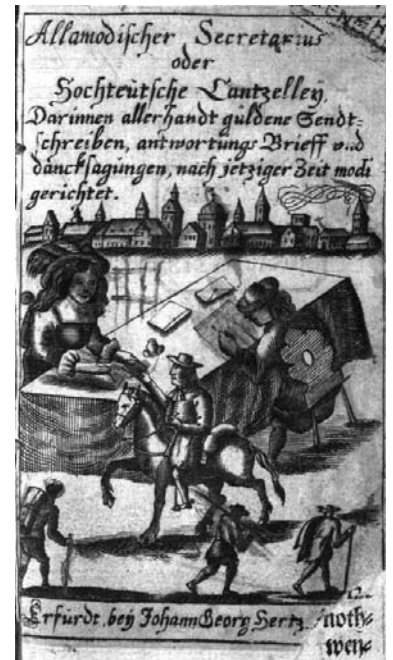 Allamodischer Secretarius
oder
Hochteütsche Cantzelley,
Darinnen allerhandt güldene Sendt=
schreiben, antwortungs Brieff vnd
dancksagüngen, nach jetziger Zeit modi
gerichtet.
Erfürdt, beÿ Johann Georg Hertz.
noth=
wen=